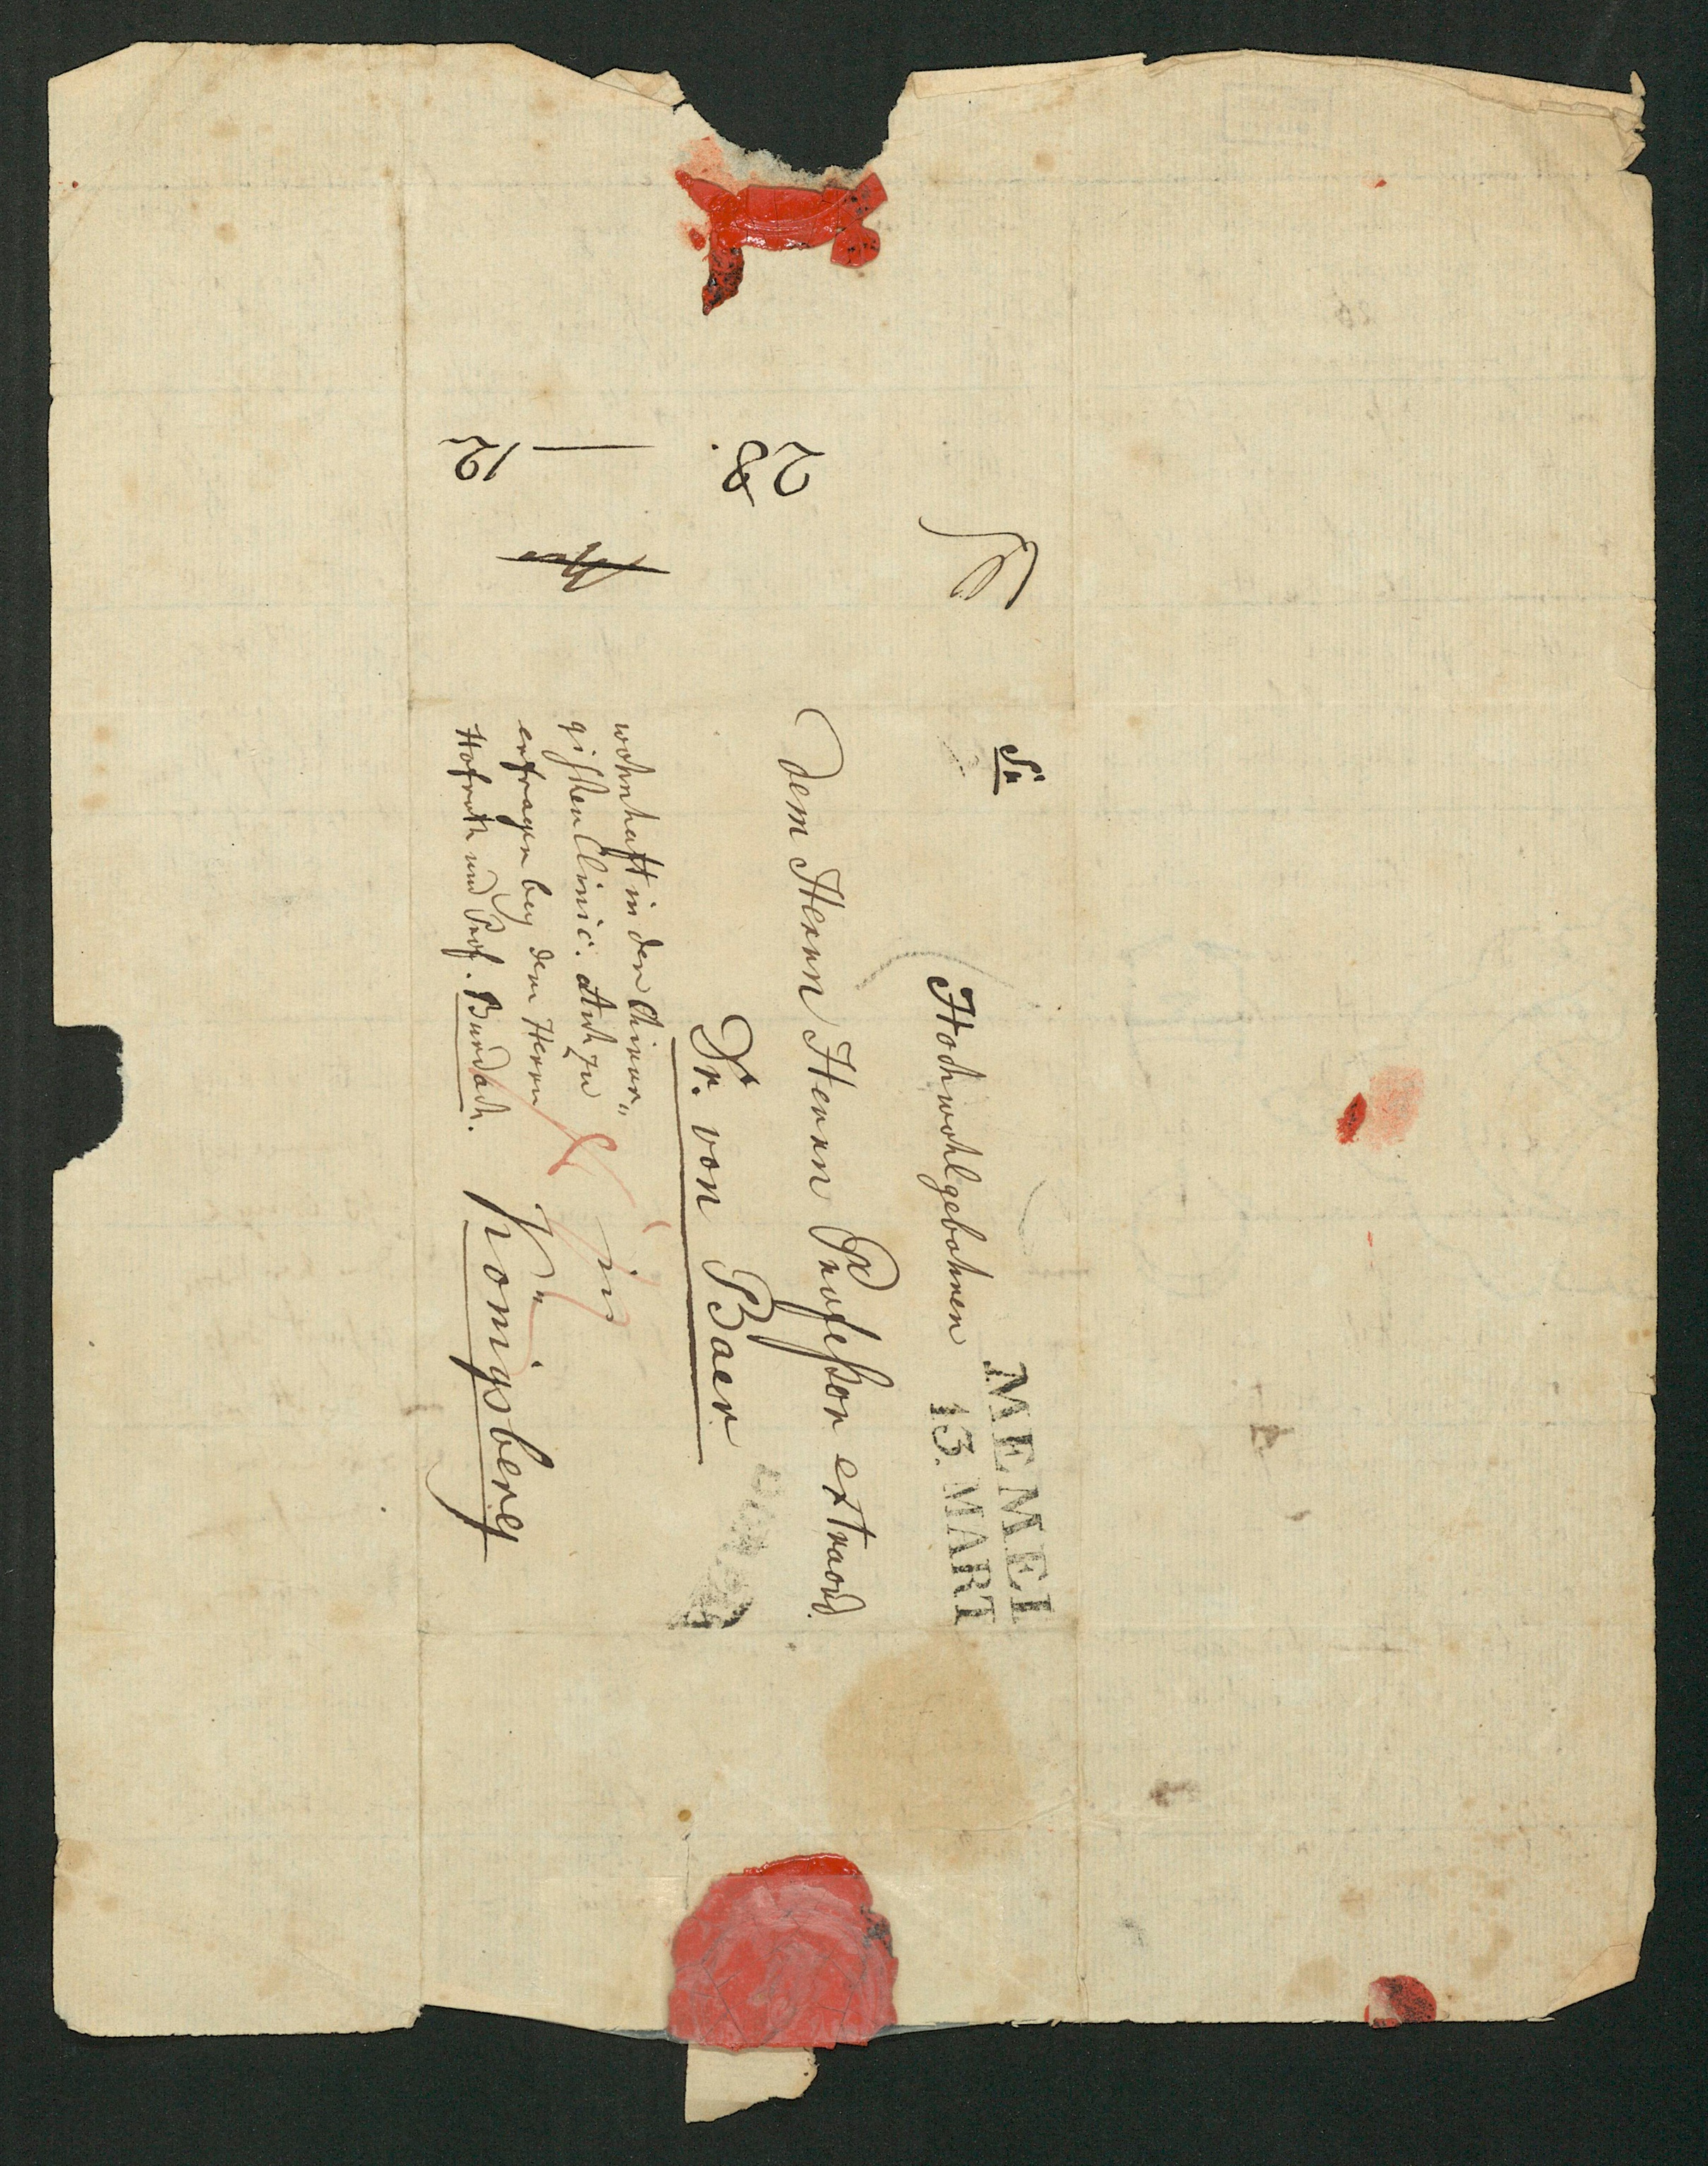 Sr
Hochwohlgebohren
MEMEL
13. MART
dem Herrn Herrn Profeßor extraord.
Dr. von Baer
in
Königsberg
wohnhaft in der Chirur„
gischen Clinic. Auch zu
erfragen bey dem Herrn
Hofrath und Prof. Burdach.
28.
12